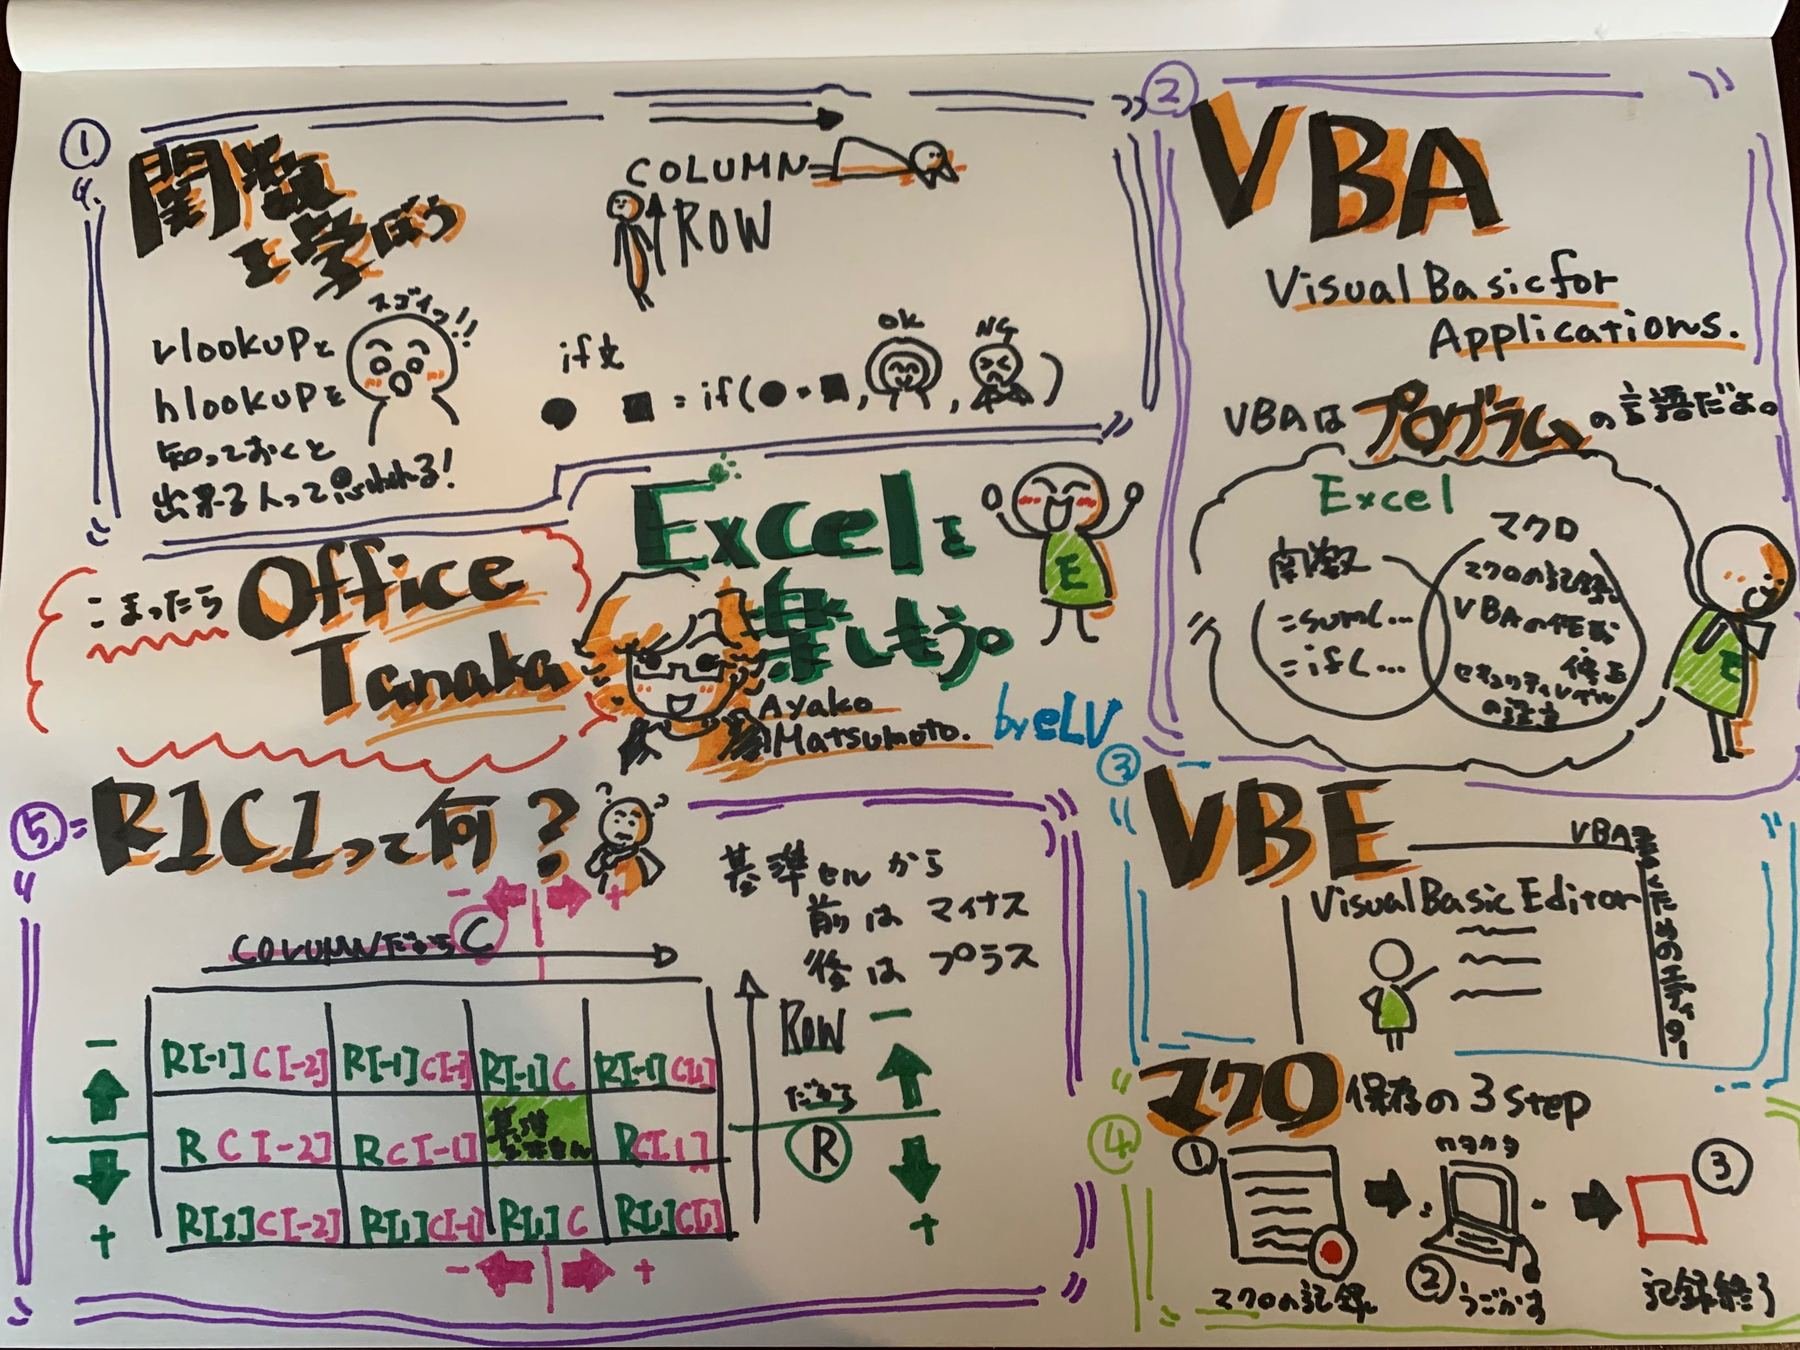 ①
関数
を学ぼう
COLUMN
ROW
vlookupと
hlookupを
知っておくと
出来る人って思われる!
スゴイっ!!
if文
= if(●・■,
OK
,
NG
)
②
VBA
Visual Basic for
Applications.
VBAはプログラムの言語だよ。
Excel
関数
=sum(...
=if(...
マクロ
マクロの記録
VBAの作成
修正
セキュリティレベル
の注意
E
こまったら
Office
Tanaka
Excelを
楽しもう。
E
Ayako
Matsumoto.
by eLV
③
VBE
Visual Basic Editor
VBAを書くためのエディター
④
マクロ保存の3step
①
マクロの記録
カタカタ
②うごかす
③
記録終了
⑤
R1C1って何?
- +
COLUMNだからC
基準セルから
前はマイナス
後はプラス
-
R[-1]C[-2] R[-1]C[-1] R[-1]C R[-1]C[1]
R C[-2] RC[-1] 基準 RC[1]
R[1]C[-2] R[1]C[-1] R[1]C R[1]C[1]
+
ROW
だから
R
-
+
- +